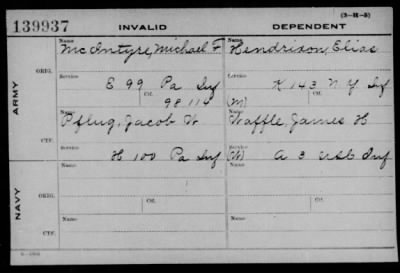 (3-H-5)
139937 INVALID DEPENDENT
Name Name
McIntyre, Michael F Hendrixon, Elias
ARMY
ORIG. Service Service
E 99 Pa Inf K 143 N Y Inf
Ctf. Ctf.
98 114 (M)
Name Name
Pflug, Jacob W Waffle, James H
CTF. Service Service
H 100 Pa Inf (W) A 3 Inf
NAVY
Name Name
ORIG.
Ctf. Ctf.
Name Name
CTF.